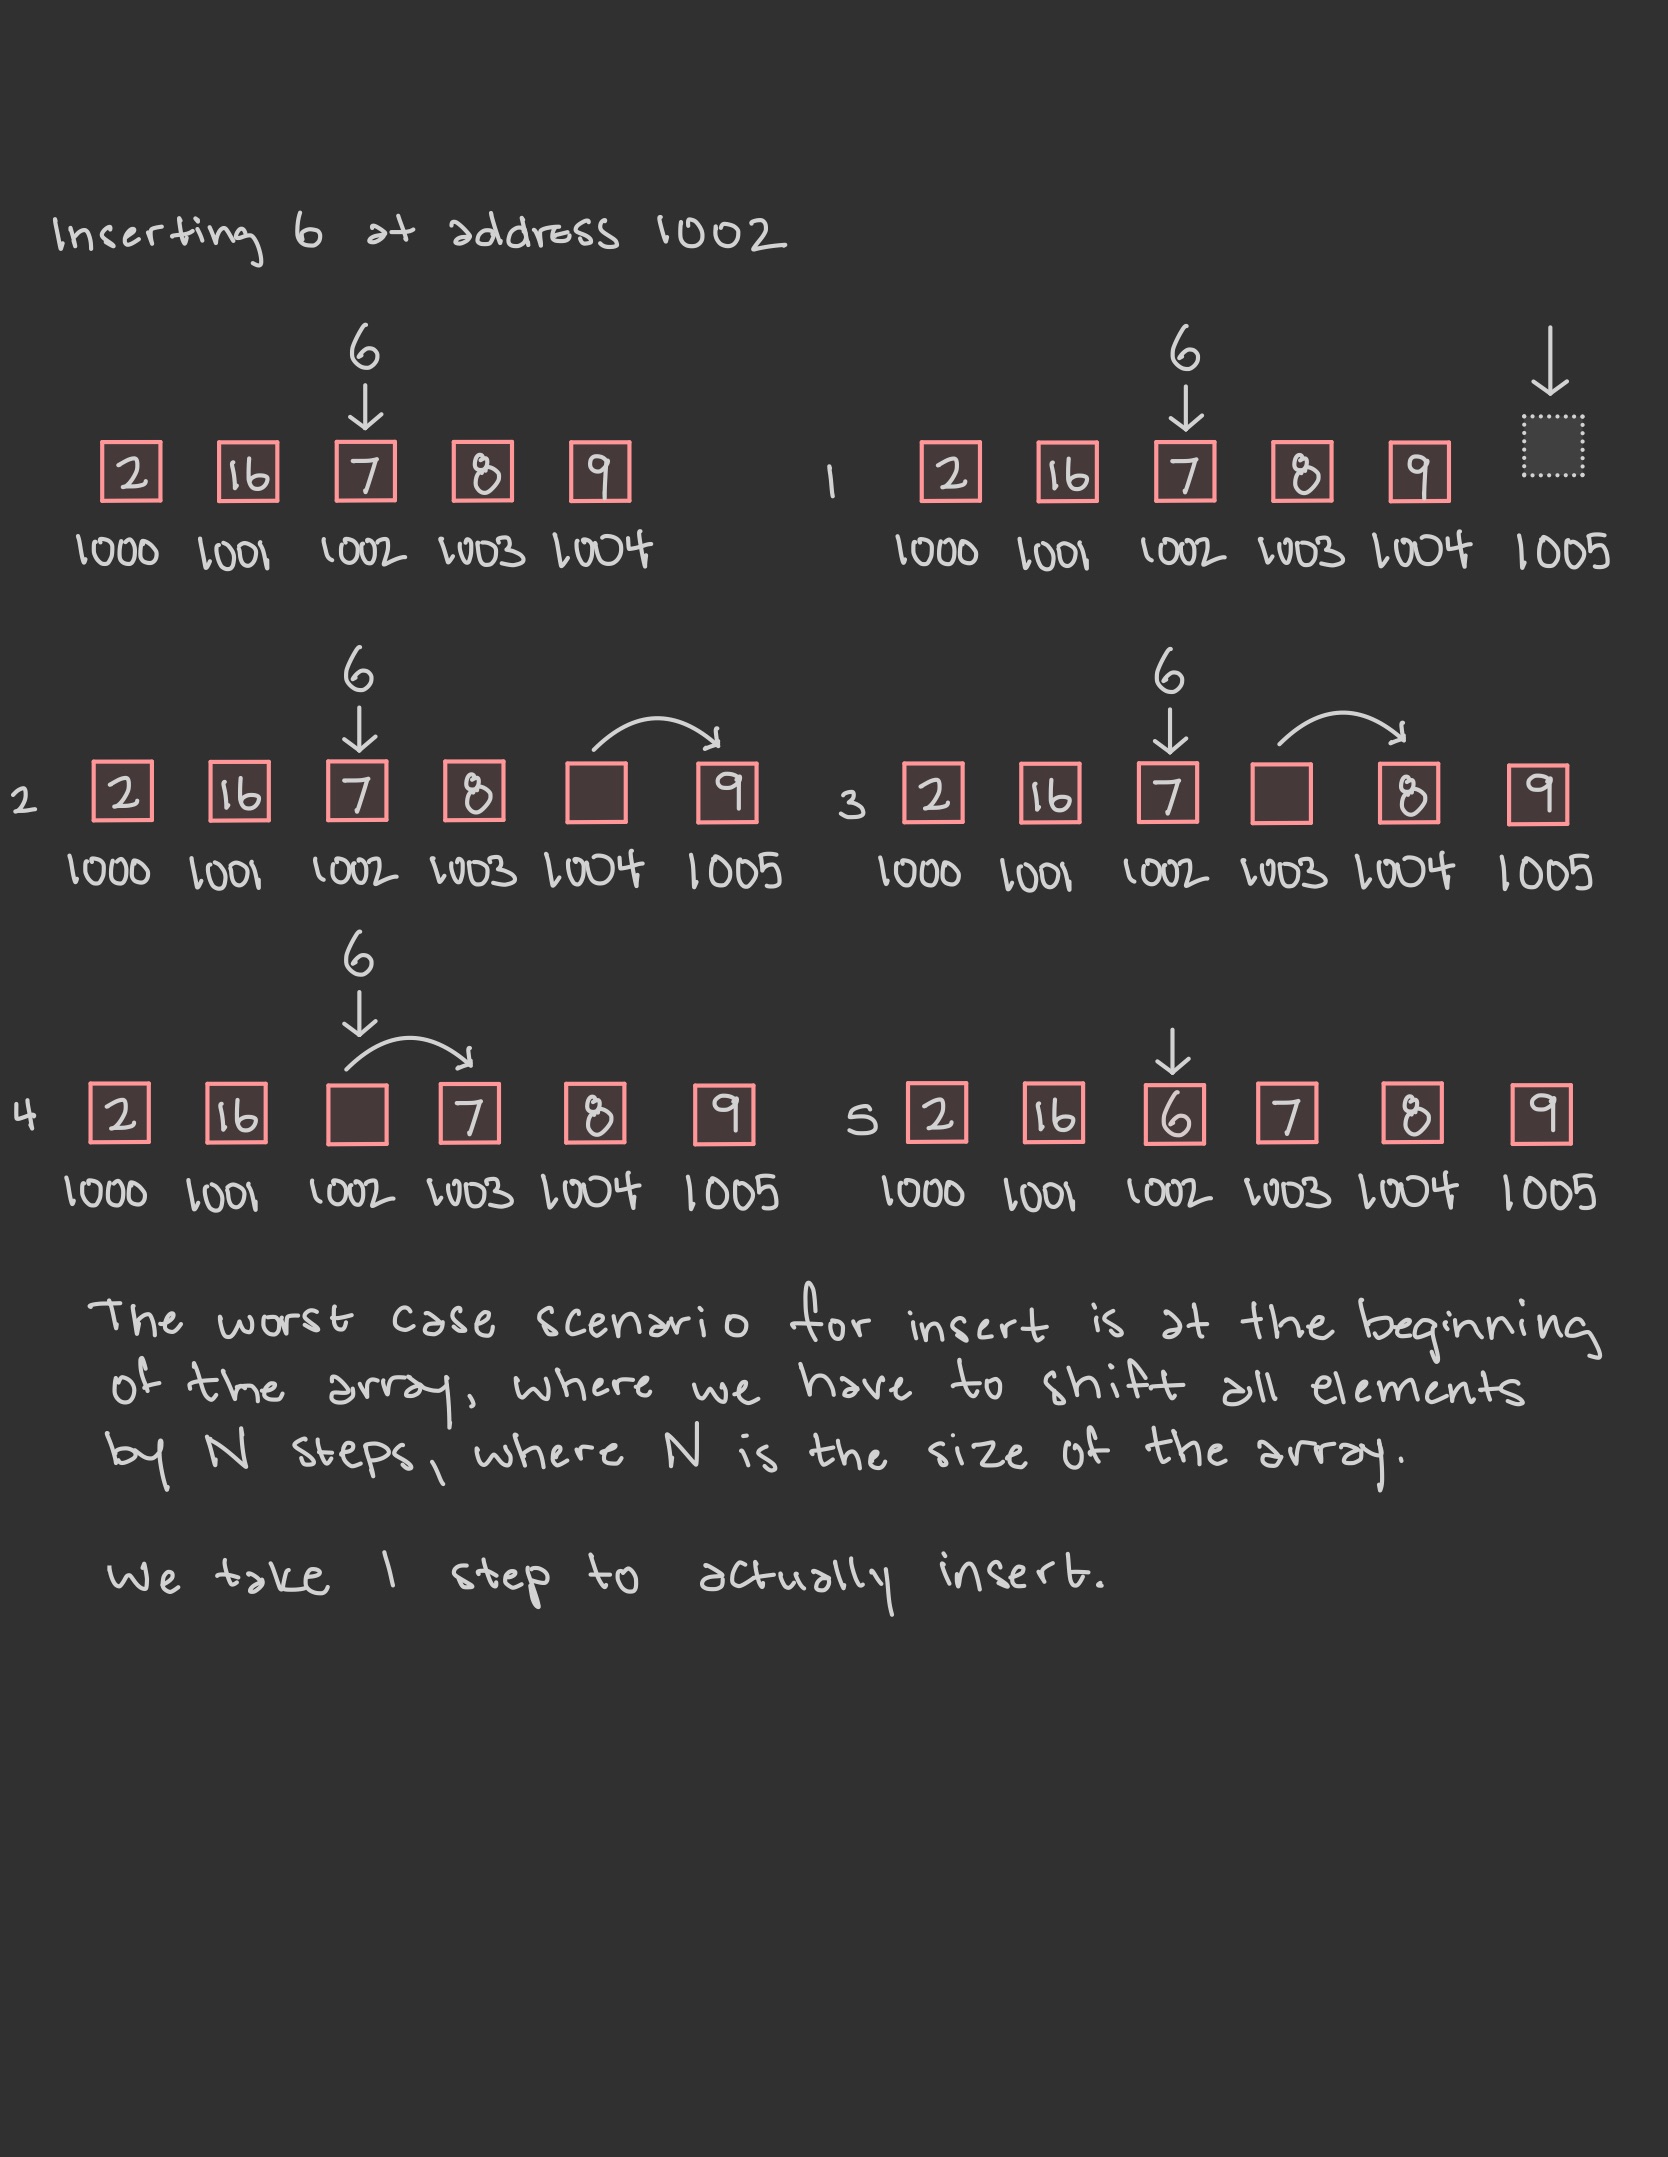 Inserting 6 at address 1002
6 6
2 16 7 8 9 1 2 16 7 8 9
1000 1001 1002 1003 1004 1000 1001 1002 1003 1004 1005
6 6
2 2 16 7 8 9 3 2 16 7 8 9
1000 1001 1002 1003 1004 1005 1000 1001 1002 1003 1004 1005
6
4 2 16 7 8 9 5 2 16 6 7 8 9
1000 1001 1002 1003 1004 1005 1000 1001 1002 1003 1004 1005
The worst case scenario for insert is at the beginning
of the array, where we have to shift all elements
by N steps, where N is the size of the array.
We take 1 step to actually insert.